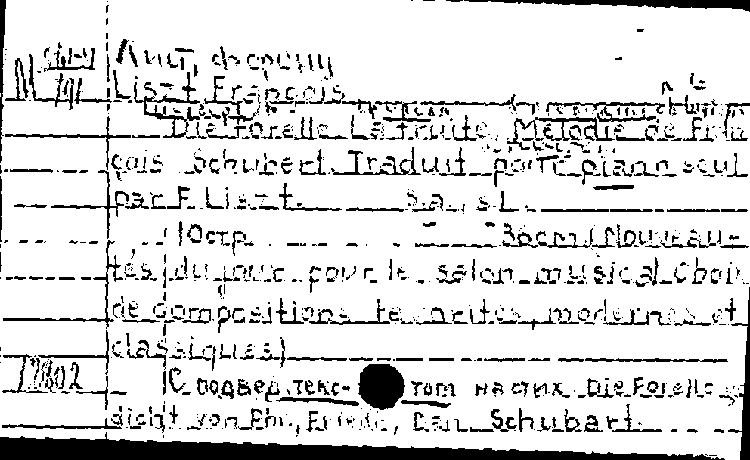 Лист, Ференц
М 191 Liszt François
Die Forelle. La truite. Mélodie de Fran
çois Schubert. Traduit pour piano seul
par F. Liszt. S.a., s.l.
10стр. 36cm (Nouveau-
tés du jour pour le salon musical. Choix
de compositions favorites, modernes et
classiques)
12802 С подвед. текс- том на стих. Die Forelle
dicht von Chr. Friedr. Dan. Schubart.